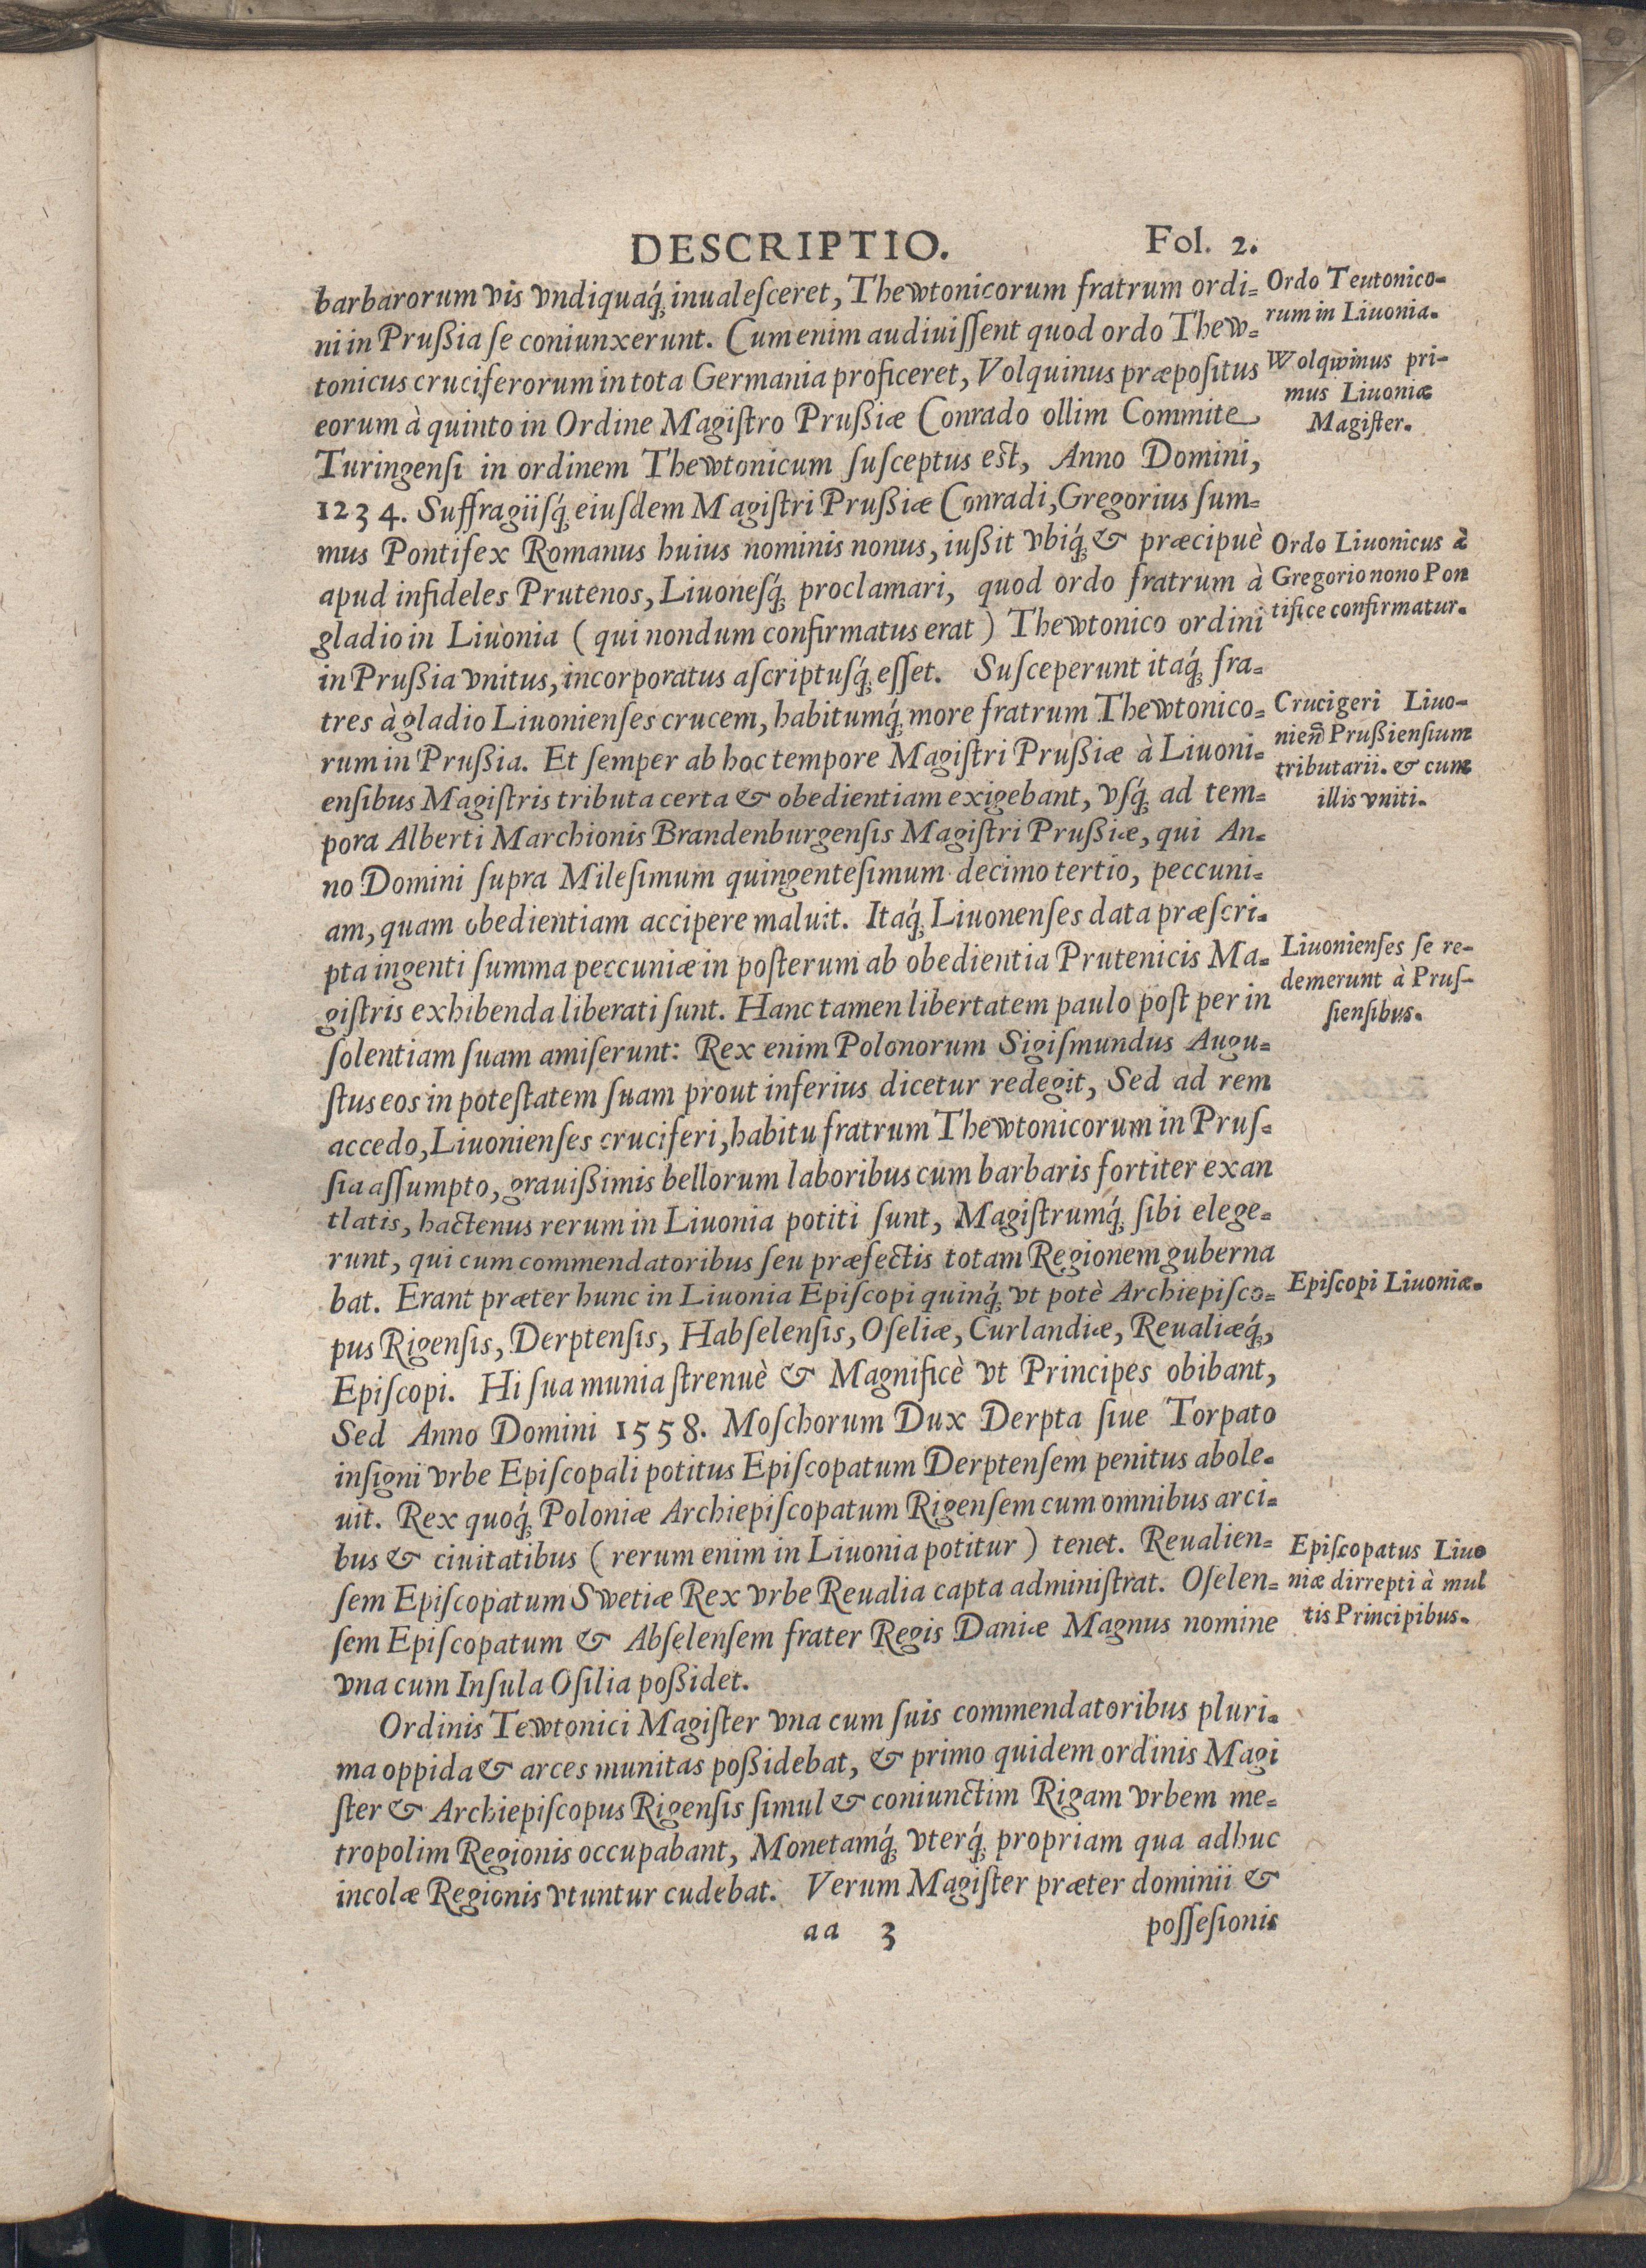 DESCRIPTIO. Fol. 2.
barbarorum vis vndiquaq́; inualeſceret, Thewtonicorum fratrum ordi-
ni in Prußia ſe coniunxerunt. Cum enim audiuiſſent quod ordo Thew-
tonicus cruciferorum in tota Germania proficeret, Volquinus præpoſitus
eorum à quinto in Ordine Magiſtro Prußiæ Conrado ollim Commite
Turingenſi in ordinem Thewtonicum ſuſceptus eſt, Anno Domini,
1234. Suffragiiſq́; eiuſdem Magiſtri Prußiæ Conradi, Gregorius ſum-
mus Pontifex Romanus huius nominis nonus, iußit vbiq́; & præcipuè
apud infideles Prutenos, Liuoneſq́; proclamari, quod ordo fratrum à
gladio in Liuonia ( qui nondum confirmatus erat ) Thewtonico ordini
in Prußia vnitus, incorporatus aſcriptuſq́; eſſet. Suſceperunt itaq́; fra-
tres à gladio Liuonienſes crucem, habitumq́; more fratrum Thewtonico-
rum in Prußia. Et ſemper ab hoc tempore Magiſtri Prußiæ à Liuoni-
enſibus Magiſtris tributa certa & obedientiam exigebant, vſq́; ad tem-
pora Alberti Marchionis Brandenburgenſis Magiſtri Prußiæ, qui An-
no Domini ſupra Mileſimum quingenteſimum decimo tertio, peccuni-
am, quam obedientiam accipere maluit. Itaq́; Liuonenſes data præſcri-
pta ingenti ſumma peccuniæ in poſterum ab obedientia Prutenicis Ma-
giſtris exhibenda liberati ſunt. Hanc tamen libertatem paulo poſt per in
ſolentiam ſuam amiſerunt: Rex enim Polonorum Sigiſmundus Augu-
ſtus eos in poteſtatem ſuam prout inferius dicetur redegit, Sed ad rem
accedo, Liuonienſes cruciferi, habitu fratrum Thewtonicorum in Pruſ-
ſia aſſumpto, grauißimis bellorum laboribus cum barbaris fortiter exan
tlatis, hactenus rerum in Liuonia potiti ſunt, Magiſtrumq́; ſibi elege-
runt, qui cum commendatoribus ſeu præfectis totam Regionem guberna
bat. Erant præter hunc in Liuonia Epiſcopi quinq́; vt potè Archiepiſco-
pus Rigenſis, Derptenſis, Habſelenſis, Oſeliæ, Curlandiæ, Reualiæq́;,
Epiſcopi. Hi ſua munia ſtrenuè & Magnificè vt Principes obibant,
Sed Anno Domini 1558. Moſchorum Dux Derpta ſiue Torpato
inſigni vrbe Epiſcopali potitus Epiſcopatum Derptenſem penitus abole-
uit. Rex quoq́; Poloniæ Archiepiſcopatum Rigenſem cum omnibus arci-
bus & ciuitatibus ( rerum enim in Liuonia potitur ) tenet. Reualien-
ſem Epiſcopatum Swetiæ Rex vrbe Reualia capta adminiſtrat. Oſelen-
ſem Epiſcopatum & Abſelenſem frater Regis Daniæ Magnus nomine
vna cum Inſula Oſilia poßidet.
Ordinis Tewtonici Magiſter vna cum ſuis commendatoribus pluri-
ma oppida & arces munitas poßidebat, & primo quidem ordinis Magi
ſter & Archiepiſcopus Rigenſis ſimul & coniunctim Rigam vrbem me-
tropolim Regionis occupabant, Monetamq́; vterq́; propriam qua adhuc
incolæ Regionis vtuntur cudebat. Verum Magiſter præter dominii &
aa 3 poſſeſionis
Ordo Teutonico-
rum in Liuonia.
Wolqwinus pri-
mus Liuoniæ
Magiſter.
Ordo Liuonicus à
Gregorio nono Pon
tifice confirmatur.
Crucigeri Liuo-
nien̄ Prußienſium
tributarii. & cum
illis vniti.
Liuonienſes ſe re-
demerunt à Pruſ-
ſienſibus.
Epiſcopi Liuoniæ.
Epiſcopatus Liuo
niæ dirrepti à mul
tis Principibus.